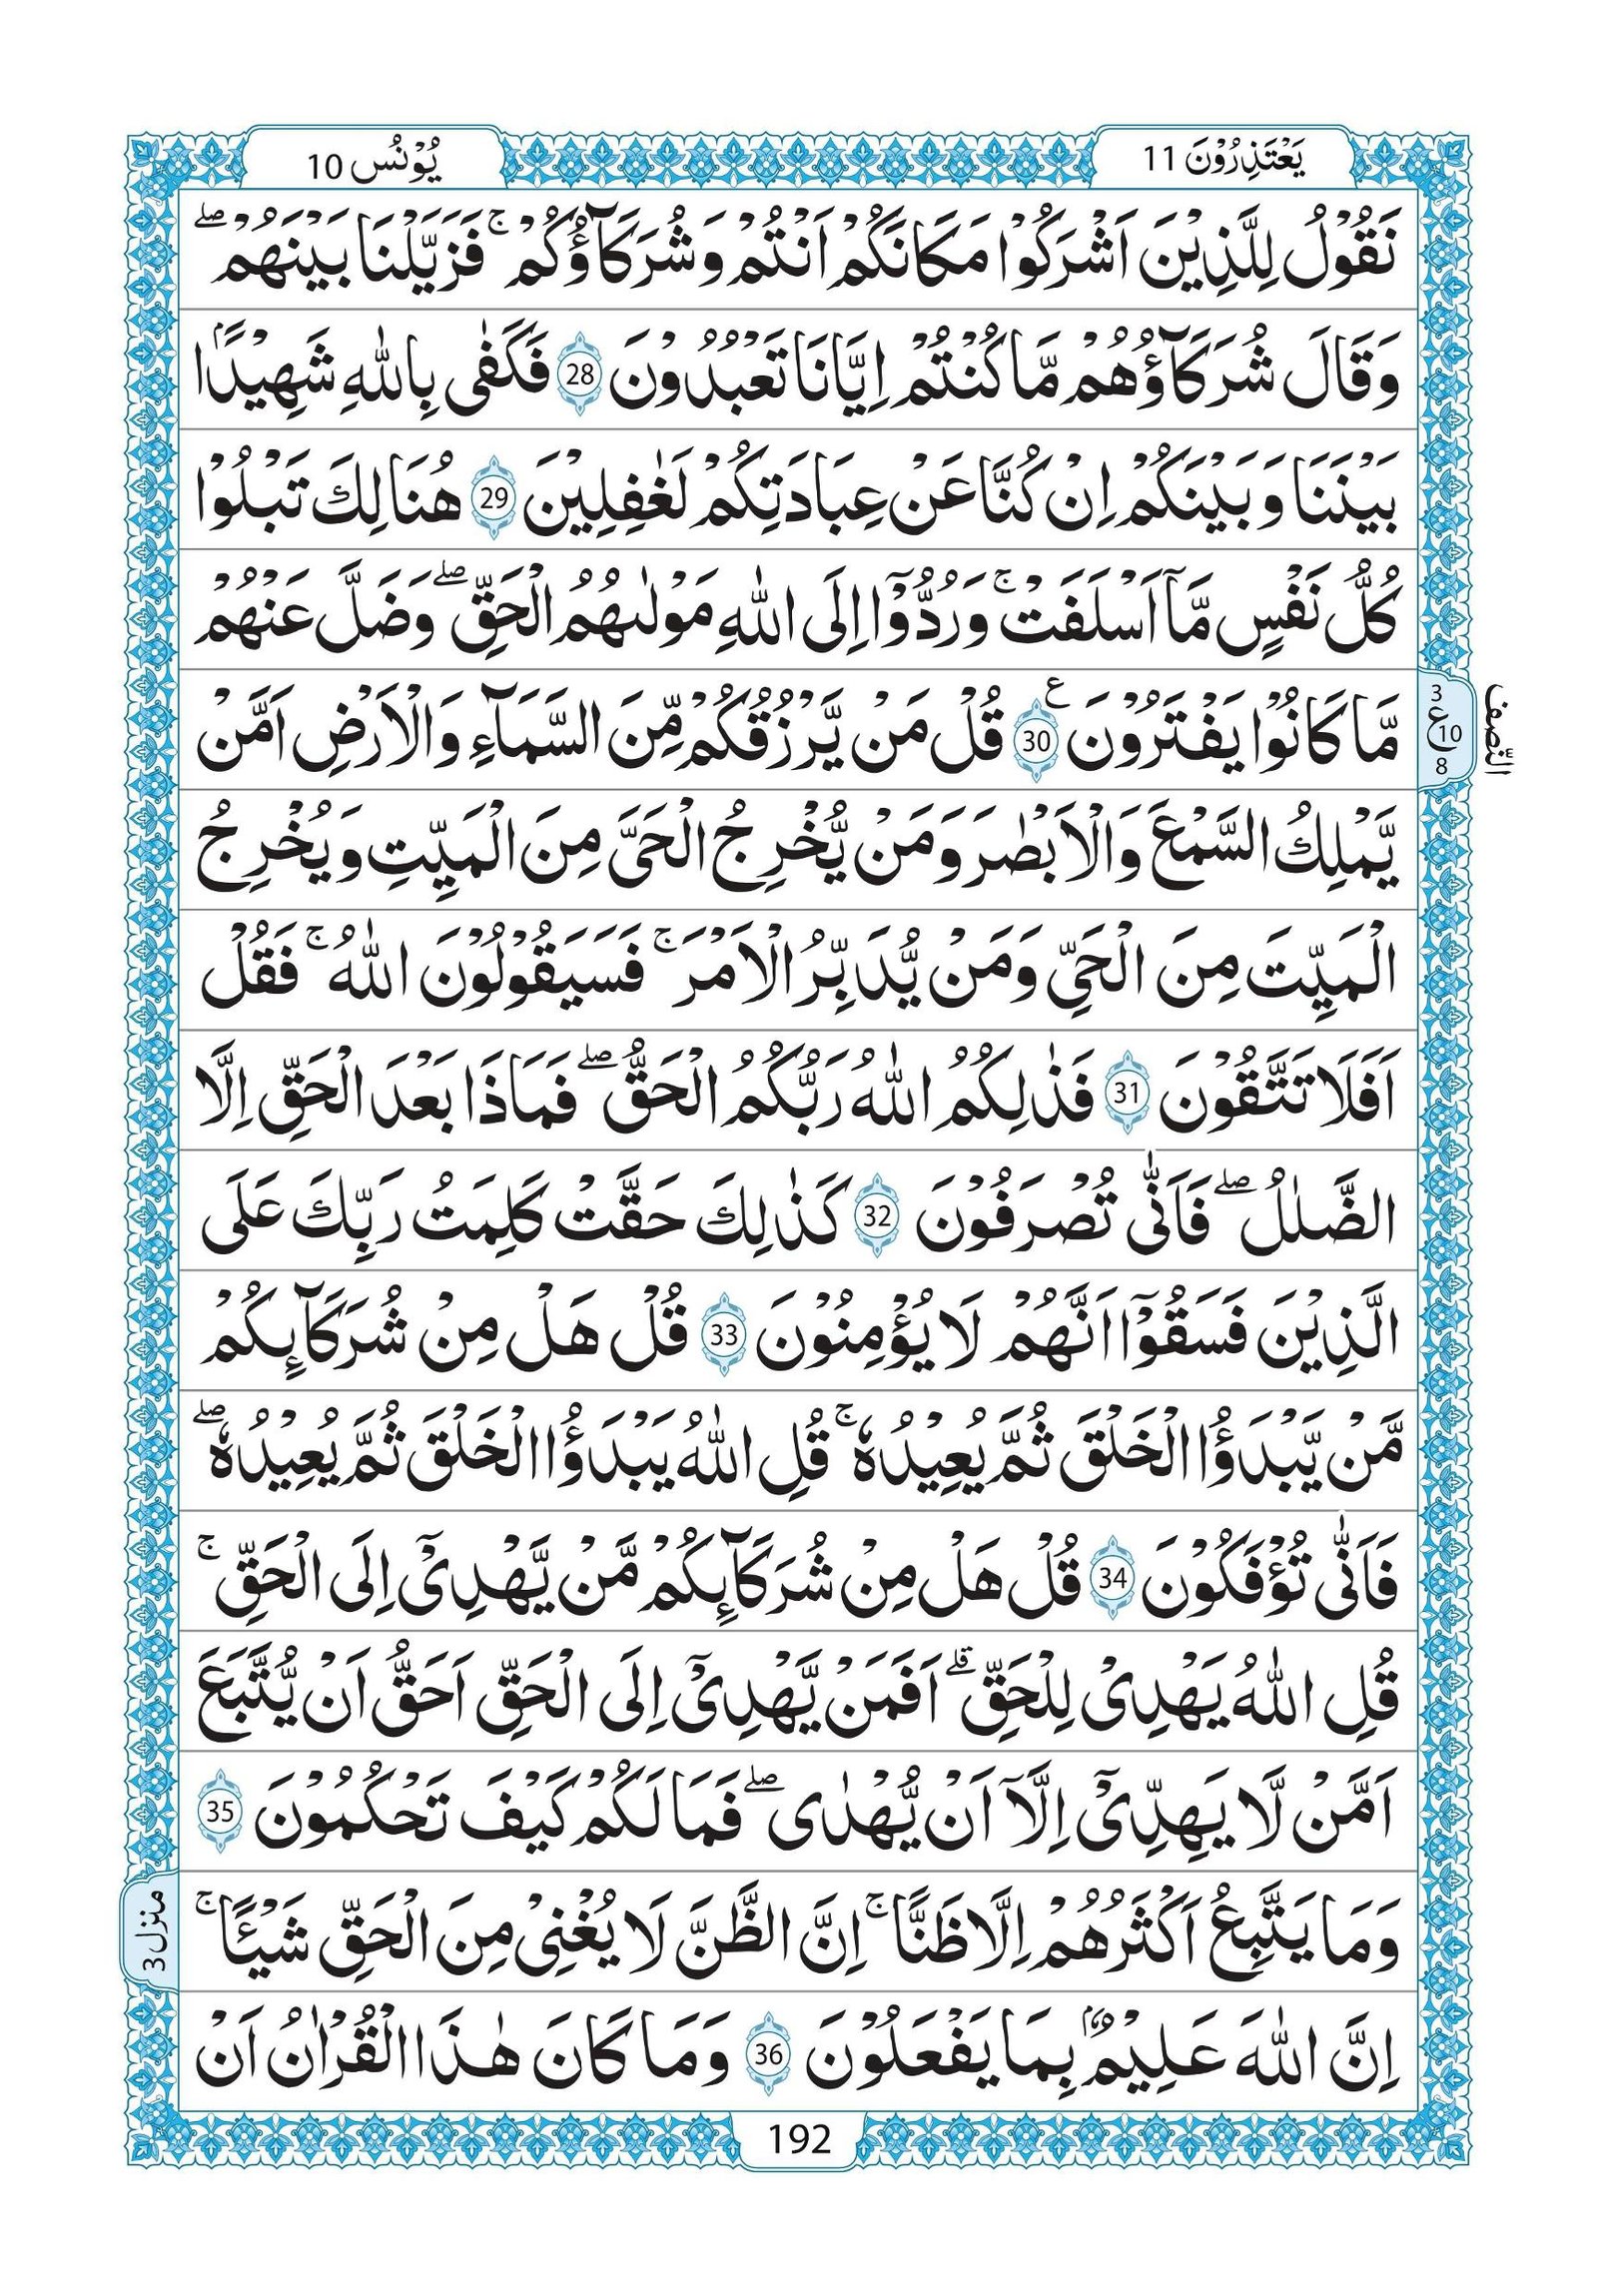 يَعْتَذِرُوْنَ 11
يُوْنُس 10
نَقُوْلُ لِلَّذِيْنَ اَشْرَكُوْا مَكَانَكُمْ اَنْتُمْ وَشُرَكَآؤُكُمْ ۚ فَزَيَّلْنَا بَيْنَهُمْ ۖ
وَقَالَ شُرَكَآؤُهُمْ مَّا كُنْتُمْ اِيَّانَا تَعْبُدُوْنَ 28 فَكَفٰى بِاللّٰهِ شَهِيْدًاۢ
بَيْنَنَا وَبَيْنَكُمْ اِنْ كُنَّا عَنْ عِبَادَتِكُمْ لَغٰفِلِيْنَ 29 هُنَالِكَ تَبْلُوْا
كُلُّ نَفْسٍ مَّآ اَسْلَفَتْ ۚ وَرُدُّوْٓا اِلَى اللّٰهِ مَوْلٰىهُمُ الْحَقِّ ۖ وَضَلَّ عَنْهُمْ
مَّا كَانُوْا يَفْتَرُوْنَ ع 30 قُلْ مَنْ يَّرْزُقُكُمْ مِّنَ السَّمَآءِ وَالْاَرْضِ اَمَّنْ
3
ع 10
8
النّصف
يَّمْلِكُ السَّمْعَ وَالْاَبْصٰرَ وَمَنْ يُّخْرِجُ الْحَيَّ مِنَ الْمَيِّتِ وَيُخْرِجُ
الْمَيِّتَ مِنَ الْحَيِّ وَمَنْ يُّدَبِّرُ الْاَمْرَ ۚ فَسَيَقُوْلُوْنَ اللّٰهُ ۚ فَقُلْ
اَفَلَا تَتَّقُوْنَ 31 فَذٰلِكُمُ اللّٰهُ رَبُّكُمُ الْحَقُّ ۖ فَمَاذَا بَعْدَ الْحَقِّ اِلَّا
الضَّلٰلُ ۖ فَاَنّٰى تُصْرَفُوْنَ 32 كَذٰلِكَ حَقَّتْ كَلِمَتُ رَبِّكَ عَلَى
الَّذِيْنَ فَسَقُوْٓا اَنَّهُمْ لَا يُؤْمِنُوْنَ 33 قُلْ هَلْ مِنْ شُرَكَآئِكُمْ
مَّنْ يَّبْدَؤُا الْخَلْقَ ثُمَّ يُعِيْدُهٗ ۚ قُلِ اللّٰهُ يَبْدَؤُا الْخَلْقَ ثُمَّ يُعِيْدُهٗ ۖ
فَاَنّٰى تُؤْفَكُوْنَ 34 قُلْ هَلْ مِنْ شُرَكَآئِكُمْ مَّنْ يَّهْدِيْٓ اِلَى الْحَقِّ ۚ
قُلِ اللّٰهُ يَهْدِيْ لِلْحَقِّ ۗ اَفَمَنْ يَّهْدِيْٓ اِلَى الْحَقِّ اَحَقُّ اَنْ يُّتَّبَعَ
اَمَّنْ لَّا يَهِدِّيْٓ اِلَّآ اَنْ يُّهْدٰى ۖ فَمَا لَكُمْ كَيْفَ تَحْكُمُوْنَ 35
وَمَا يَتَّبِعُ اَكْثَرُهُمْ اِلَّا ظَنًّا ۚ اِنَّ الظَّنَّ لَا يُغْنِيْ مِنَ الْحَقِّ شَيْـًٔا ۚ
منزل 3
اِنَّ اللّٰهَ عَلِيْمٌۢ بِمَا يَفْعَلُوْنَ 36 وَمَا كَانَ هٰذَا الْقُرْاٰنُ اَنْ
192